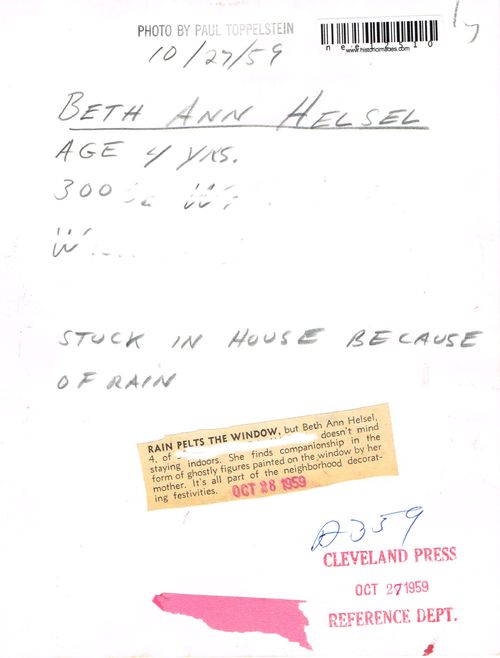 PHOTO BY PAUL TOPPELSTEIN
10/27/59
www.historicimages.com
BETH ANN HELSEL
AGE 4 YRS.
300
W
STUCK IN HOUSE BECAUSE
OF RAIN
RAIN PELTS THE WINDOW, but Beth Ann Helsel,
4, of doesn't mind
staying indoors. She finds companionship in the
form of ghostly figures painted on the window by her
mother. It's all part of the neighborhood decorat-
ing festivities. OCT 28 1959
A359
CLEVELAND PRESS
OCT 27 1959
REFERENCE DEPT.